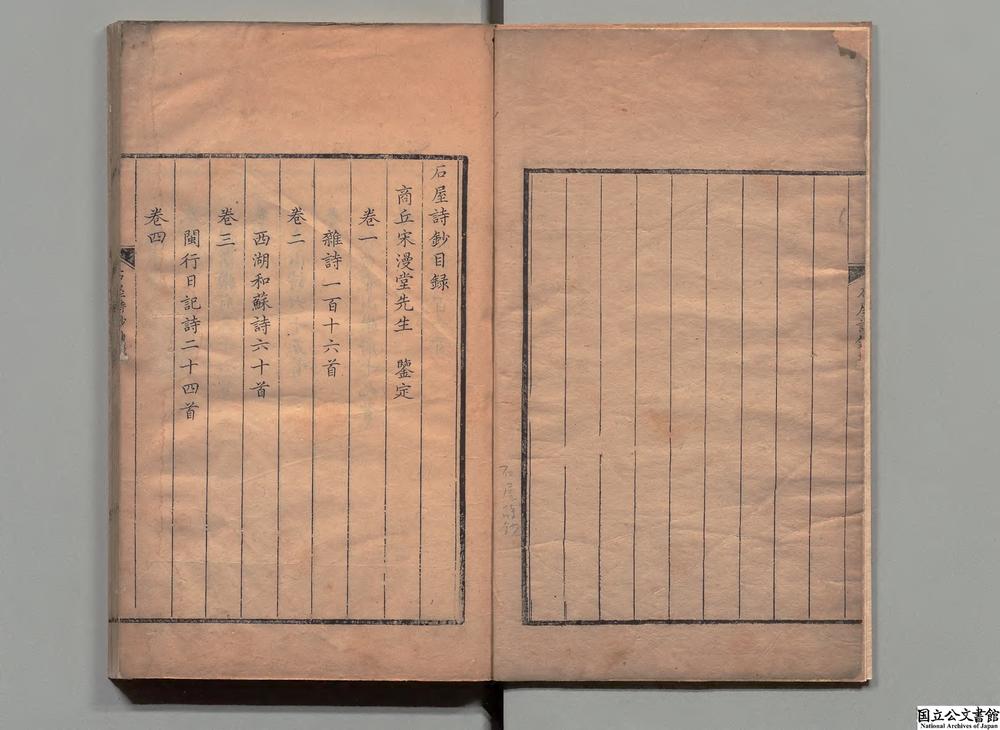 石屋詩鈔目録
商丘宋漫堂先生　鑒定
卷一
雜詩一百十六首
卷二
西湖和蘇詩六十首
卷三
閩行日記詩二十四首
卷四
石屋詩鈔
国立公文書館
National Archives of Japan